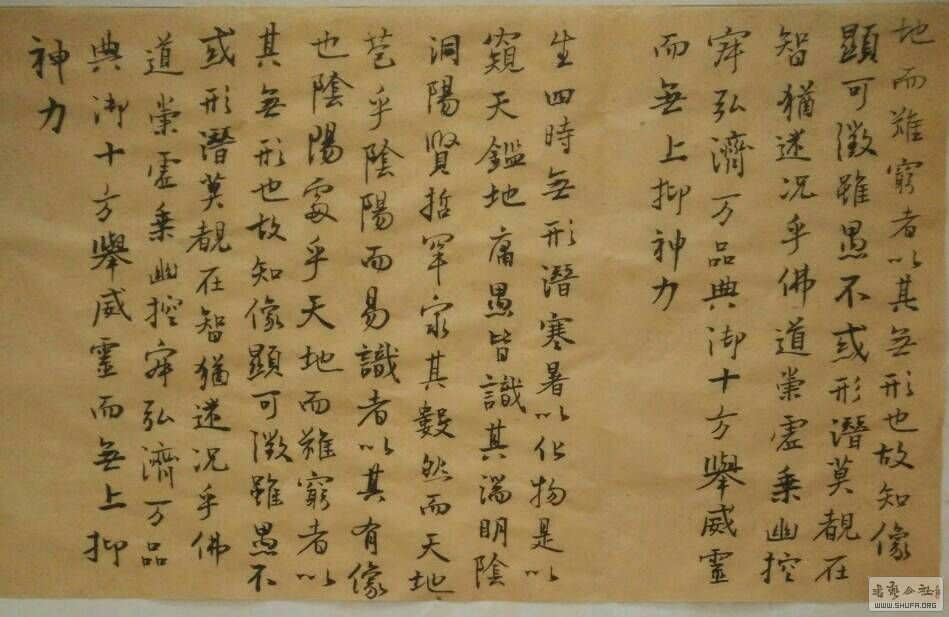 地而難窮者以其無形也故知像
顯可徵雖愚不或形潛莫覩在
智猶迷况乎佛道崇虛乗幽控
寂弘濟万品典御十方舉威靈
而無上抑神力
生四時無形潛寒暑以化物是以
窺天鑑地庸愚皆識其端明陰
洞陽賢哲罕窮其數然而天地
苞乎陰陽而易識者以其有像
也陰陽處乎天地而難窮者以
其無形也故知像顯可徵雖愚不
或形潛莫覩在智猶迷况乎佛
道崇虛乗幽控寂弘濟万品
典御十方舉威靈而無上抑
神力
书艺公社
WWW.SHUFA.ORG